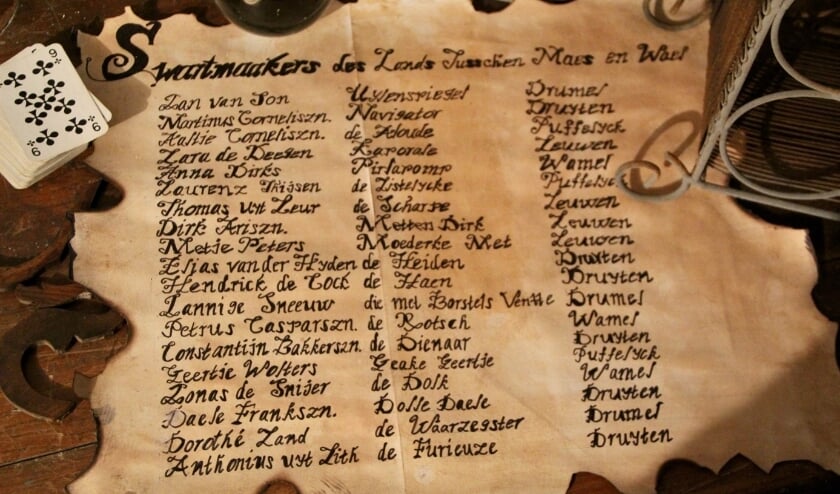 Swartmaakers des Lands Tusschen Maes en Wael
Jan van Son Uylenspiegel Drumel
Martinus Corneliszn. Navigator Druyten
Aaltje Corneliszn. de Adoude Puffelyck
Lara de Deegen Kaporale Leuwen
Anna Dirks Wamel
Laurenz Thijsen de Listelycke Puffelyck
Thomas uyt Leur de Scharpe Leuwen
Dirk Ariszn. Metten Dirk Leuwen
Metje Peters Moederke Met Leuwen
Elias van der Hyden de Heiden Druyten
Hendrick de Cock de Haen Druyten
Jannige Sneeuw die met Borstels Ventte Drumel
Petrus Casparszn. de Rotsch Wamel
Constantijn Bakkerszn. de Dienaar Druyten
Geertje Wolters Geake Geertje Puffelyck
Jonas de Snijer de Dolk Wamel
Daele Frankszn. Dolle Daele Druyten
Dorothé Zand de Waarzegster Drumel
Anthonius uyt Lith de Furieuze Druyten
9
9